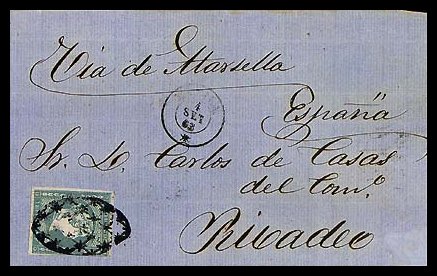 Via de Marsella
4
SET
62
España
Sr. D. Carlos de Casas
del Com.º
Rivadeo